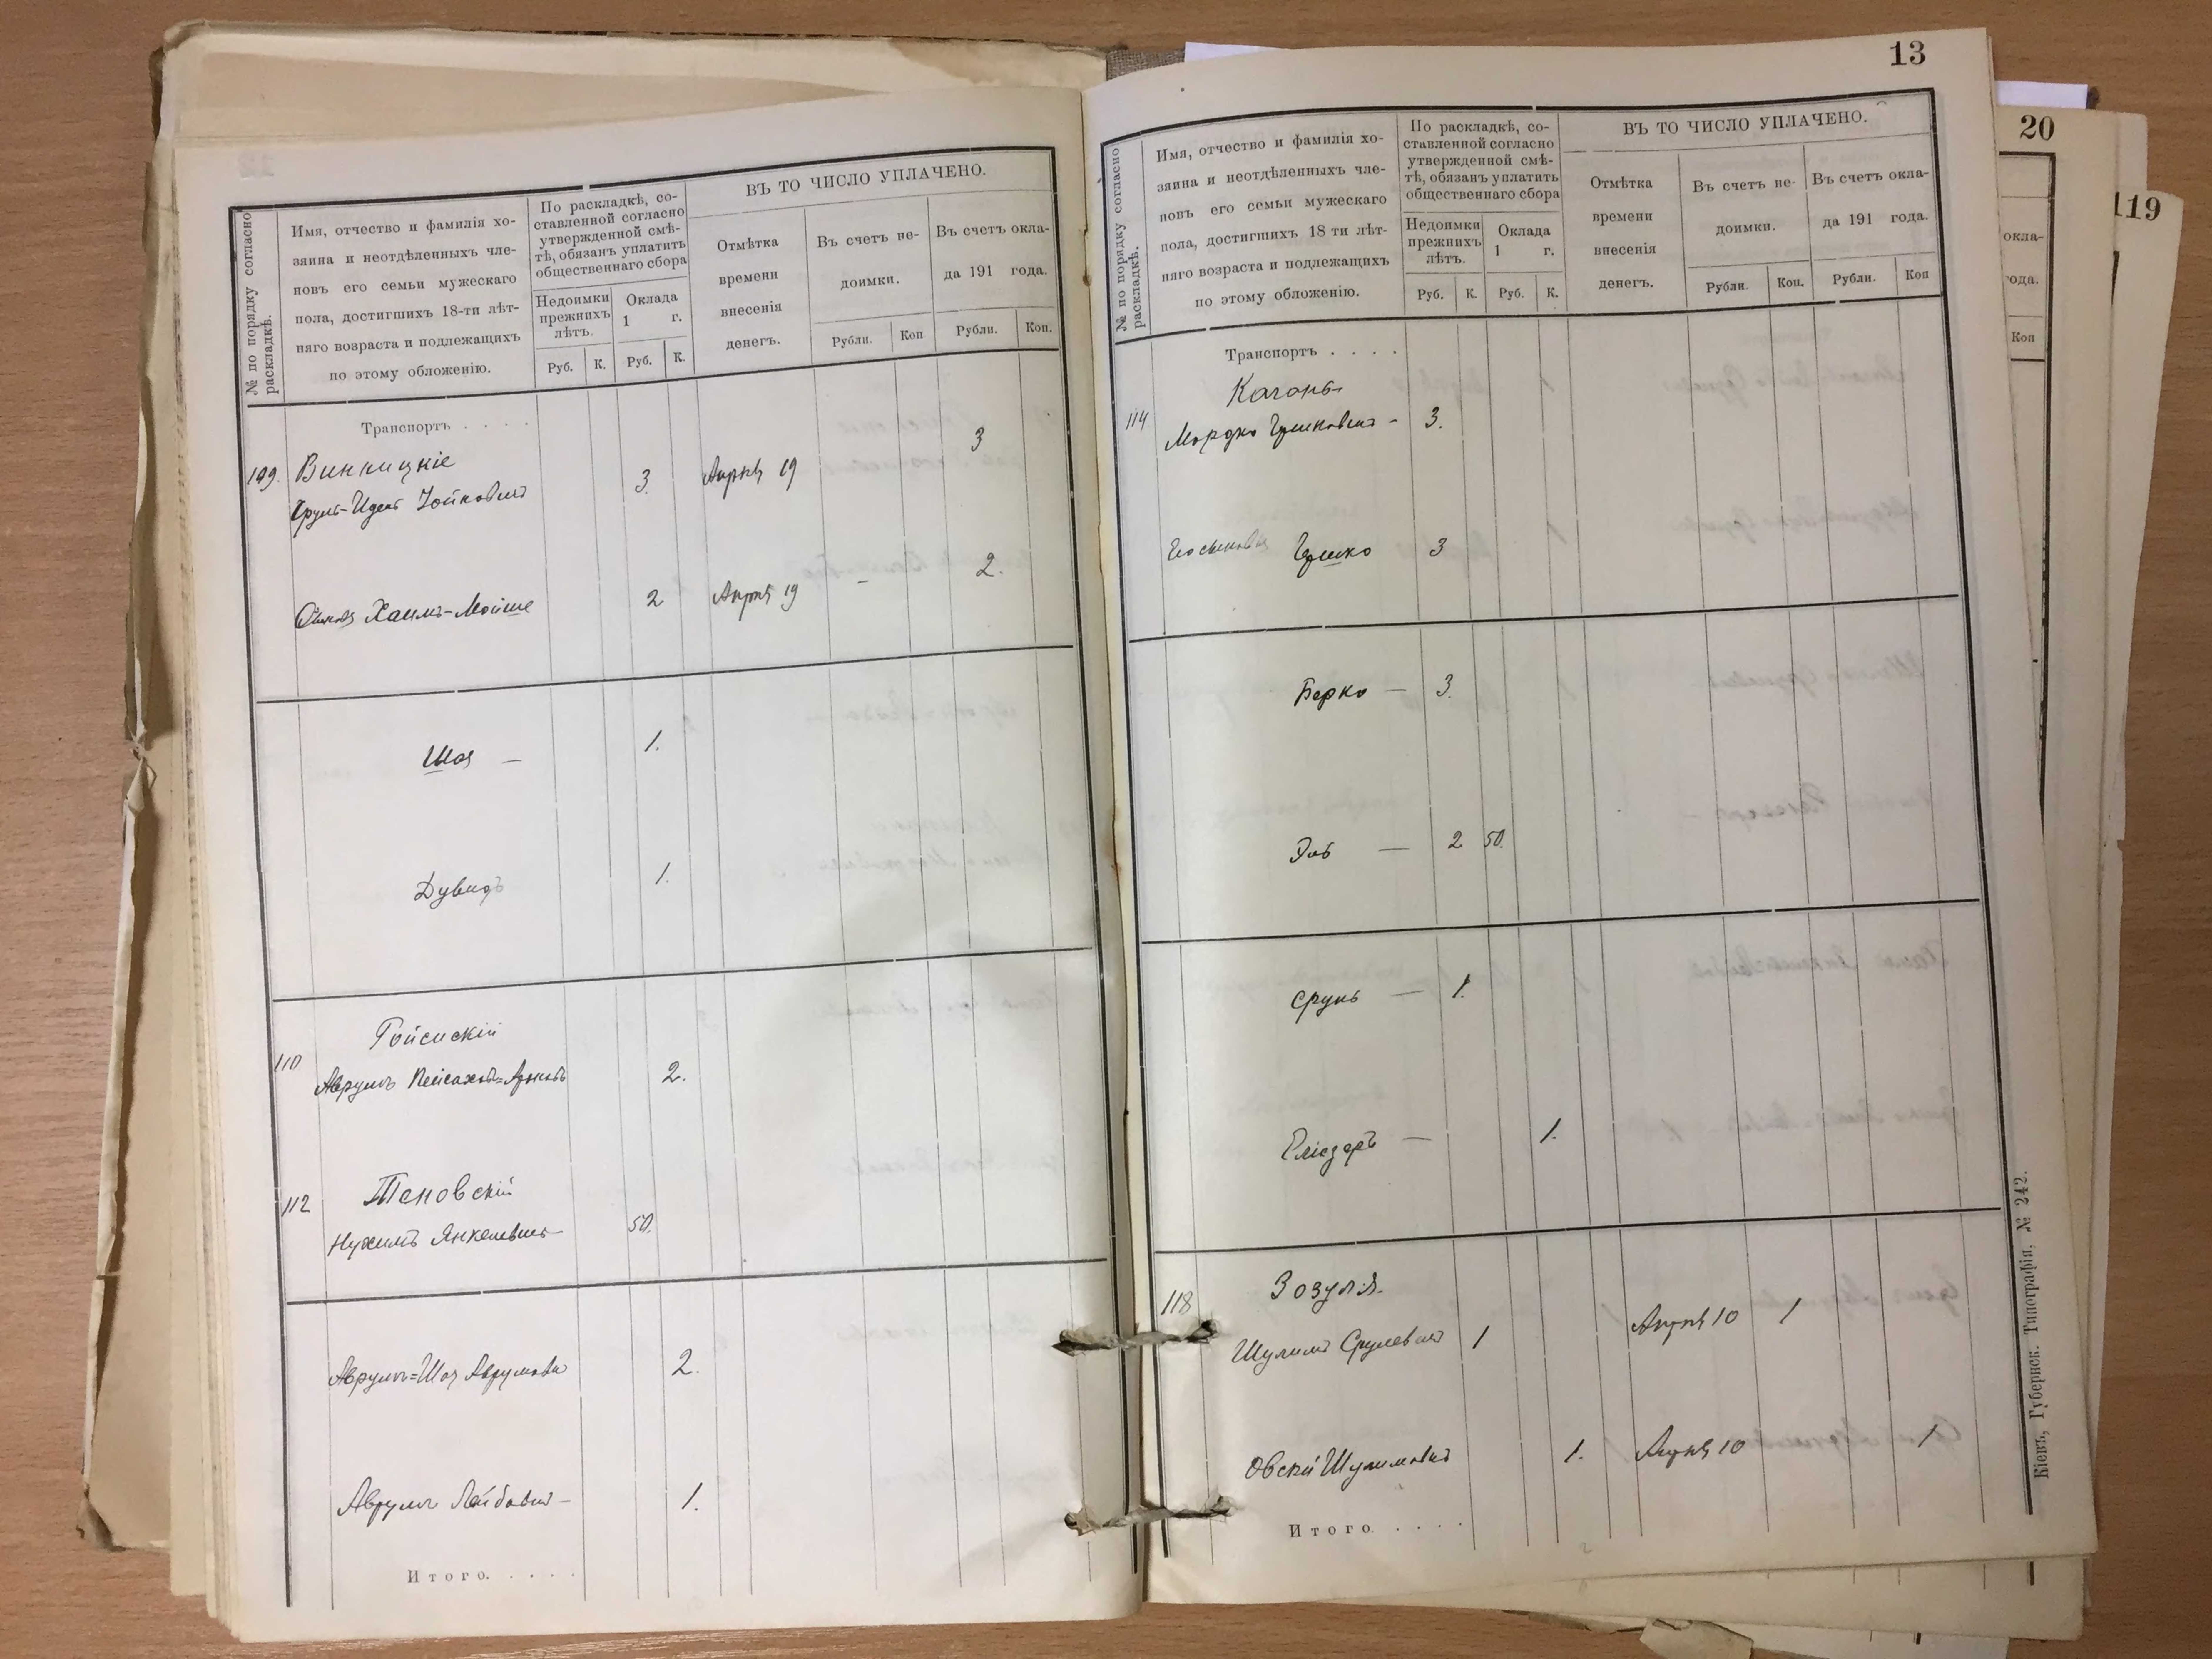 № по порядку согласно
раскладкѣ.
Имя, отчество и фамилія хо-
зяина и неотдѣленныхъ чле-
новъ его семьи мужескаго
пола, достигшихъ 18-ти лѣт-
няго возраста и подлежащихъ
по этому обложенію.
По раскладкѣ, со-
ставленной согласно
утвержденной смѣ-
тѣ, обязанъ уплатить
общественнаго сбора
Недоимки
прежнихъ
лѣтъ.
Оклада
1 г.
Руб. К. Руб. К.
ВЪ ТО ЧИСЛО УПЛАЧЕНО.
Отмѣтка
времени
внесенія
денегъ.
Въ счетъ не-
доимки.
Въ счетъ окла-
да 191 года.
Рубли. Коп Рубли. Коп.
Транспортъ . . . .
109. Винницкіе
Срулъ-Идель 3. Апрѣля 19 3
Хаимъ-Мойше 2 Апрѣля 19 - 2.
Шая — 1.
Дувидъ 1.
110 Гойсискій
Аврумъ 2.
112 Теновскій
Нухимъ Янкелевичъ 50.
Аврумъ=Шая Аврумовичъ 2.
Аврумъ Лейбовичъ - 1.
Итого. . . . .
13
№ по порядку согласно
раскладкѣ.
Имя, отчество и фамилія хо-
зяина и неотдѣленныхъ чле-
новъ его семьи мужескаго
пола, достигшихъ 18 ти лѣт-
няго возраста и подлежащихъ
по этому обложенію.
По раскладкѣ, со-
ставленной согласно
утвержденной смѣ-
тѣ, обязанъ уплатить
общественнаго сбора
Недоимки
прежнихъ
лѣтъ.
Оклада
1 г.
Руб. К. Руб. К.
ВЪ ТО ЧИСЛО УПЛАЧЕНО.
Отмѣтка
времени
внесенія
денегъ.
Въ счетъ не-
доимки.
Въ счетъ окла-
да 191 года.
Рубли. Коп. Рубли. Коп
Транспортъ . . . .
Каганъ
114 Мордко Гершковичъ - 3.
Гершко 3
Берко — 3.
Эль — 2 50.
Срулъ — 1.
Еліезеръ — 1.
118 Зозуля.
Шулимъ Срулевичъ 1 Апрѣля 10 1
Овсей Шулимовичъ 1. Апрѣля 10 1
Итого. . . . .
Кіевъ, Губернск. Типографія, № 242.
20
окла-
года.
Коп
119